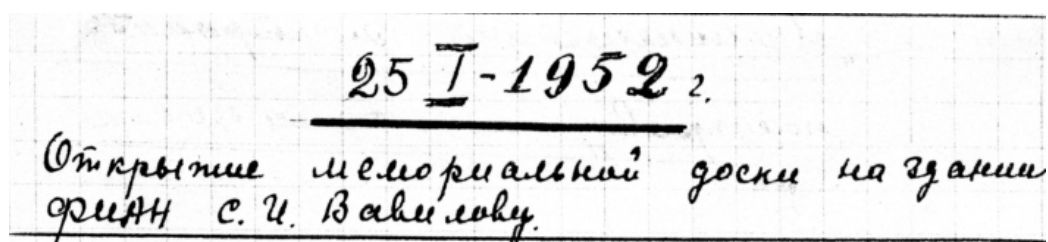 25 I - 1952 г.
Открытие мемориальной доски на здании
ФИАН С. И. Вавилову.